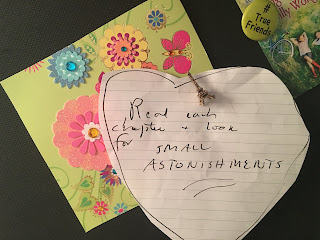 Read each
chapter + look
for SMALL
ASTONISHMENTS
#
True
Friends
My Wor